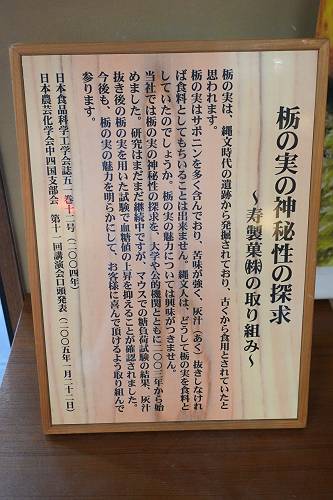 栃の実の神秘性の探求
～寿製菓㈱の取り組み～
栃の実は、縄文時代の遺跡から発掘されており、古くから食用とされていたと
思われます。
栃の実はサポニンを多く含んでおり、苦味が強く、灰汁（あく）抜きしなけれ
ば食料としてもちいることは出来ません。縄文人は、どうして栃の実を食料と
していたのでしょうか。栃の実の魅力については興味がつきません。
当社では栃の実の神秘性の探求を、大学や公的機関とともに二〇〇三年から始
めました。研究はまだまだ継続中ですが、マウスでの糖負荷試験の結果、灰汁
抜き後の栃の実を用いた試験で血糖値の上昇を抑えることが確認されました。
今後も、栃の実の魅力を明らかにして、お客様に喜んで頂けるよう取り組んで
参ります。
日本食品科学工学会誌五一巻十二号（二〇〇四年）
日本農芸化学会中四国支部会　第十一回講演会口頭発表（二〇〇五年一月二十二日）